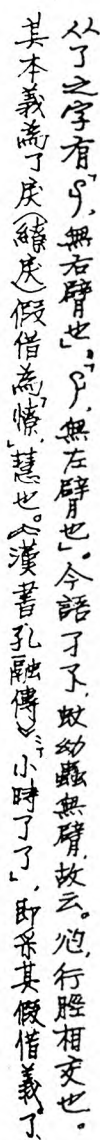 从了之字有「孑，無右臂也」，「孓，無左臂也」。今語孑孓，蚊幼蟲無臂，故云。尥，行脛相交也。
其本義為了戾（繚戾）假借為「憭」，慧也。《漢書孔融傳》：「小時了了」，即采其假借義。